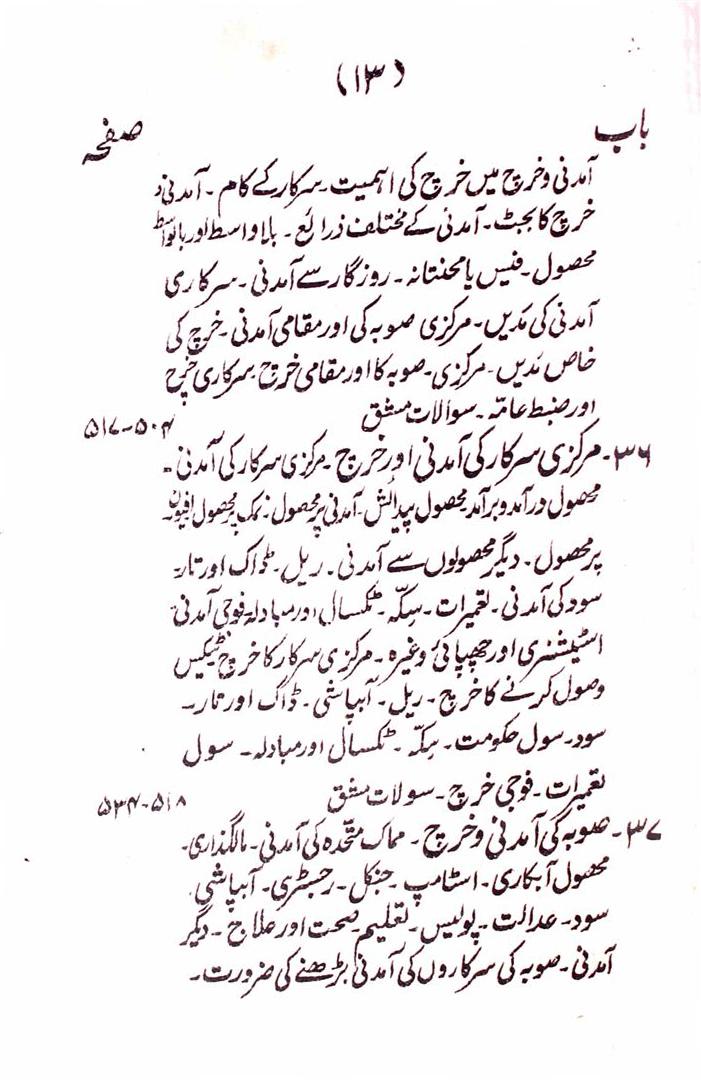 (۱۳)
باب
صفحہ
آمدنی و خرچ میں خرچ کی اہمیت۔ سرکار کے کام۔ آمدنی و
خرچ کا بجٹ۔ آمدنی کے مختلف ذرائع۔ بلاواسطہ اور بالواسطہ
محصول۔ فیس یا محنتانہ۔ روزگار سے آمدنی۔ سرکاری
آمدنی کی مدیں۔ مرکزی صوبہ کی اور مقامی آمدنی۔ خرچ کی
خاص مدیں۔ مرکزی۔ صوبہ کا اور مقامی خرچ۔ سرکاری خرچ
اور ضبط عامہ۔ سوالات مشق
۵۰۴-۵۱۷
۳۶۔ مرکزی سرکار کی آمدنی اور خرچ۔ مرکزی سرکار کی آمدنی۔
محصول درآمد و برآمد۔ محصول پیدائش۔ آمدنی پر محصول۔ نمک پر محصول افیون
پر محصول۔ دیگر محصولوں سے آمدنی۔ ریل۔ ڈاک اور تار۔
سود کی آمدنی۔ تعمیرات۔ سکّہ۔ ٹکسال اور مبادلہ۔ فوجی آمدنی۔
اسٹیشنری اور چھپائی وغیرہ۔ مرکزی سرکار کا خرچ۔ ٹیکس
وصول کرنے کا خرچ۔ ریل۔ آبپاشی۔ ڈاک اور تار۔
سود۔ سول حکومت۔ سکّہ۔ ٹکسال اور مبادلہ۔ سول
تعمیرات۔ فوجی خرچ۔ سولات مشق
۵۱۸-۵۳۴
۳۷۔ صوبہ کی آمدنی و خرچ۔ ممالک متحّدہ کی آمدنی۔ مالگذاری۔
محصول آبکاری۔ اسٹامپ۔ جنگل۔ رجسٹری۔ آبپاشی۔
سود۔ عدالت۔ پولیس۔ تعلیم۔ صحت اور علاج۔ دیگر
آمدنی۔ صوبہ کی سرکاروں کی آمدنی بڑھنے کی ضرورت۔